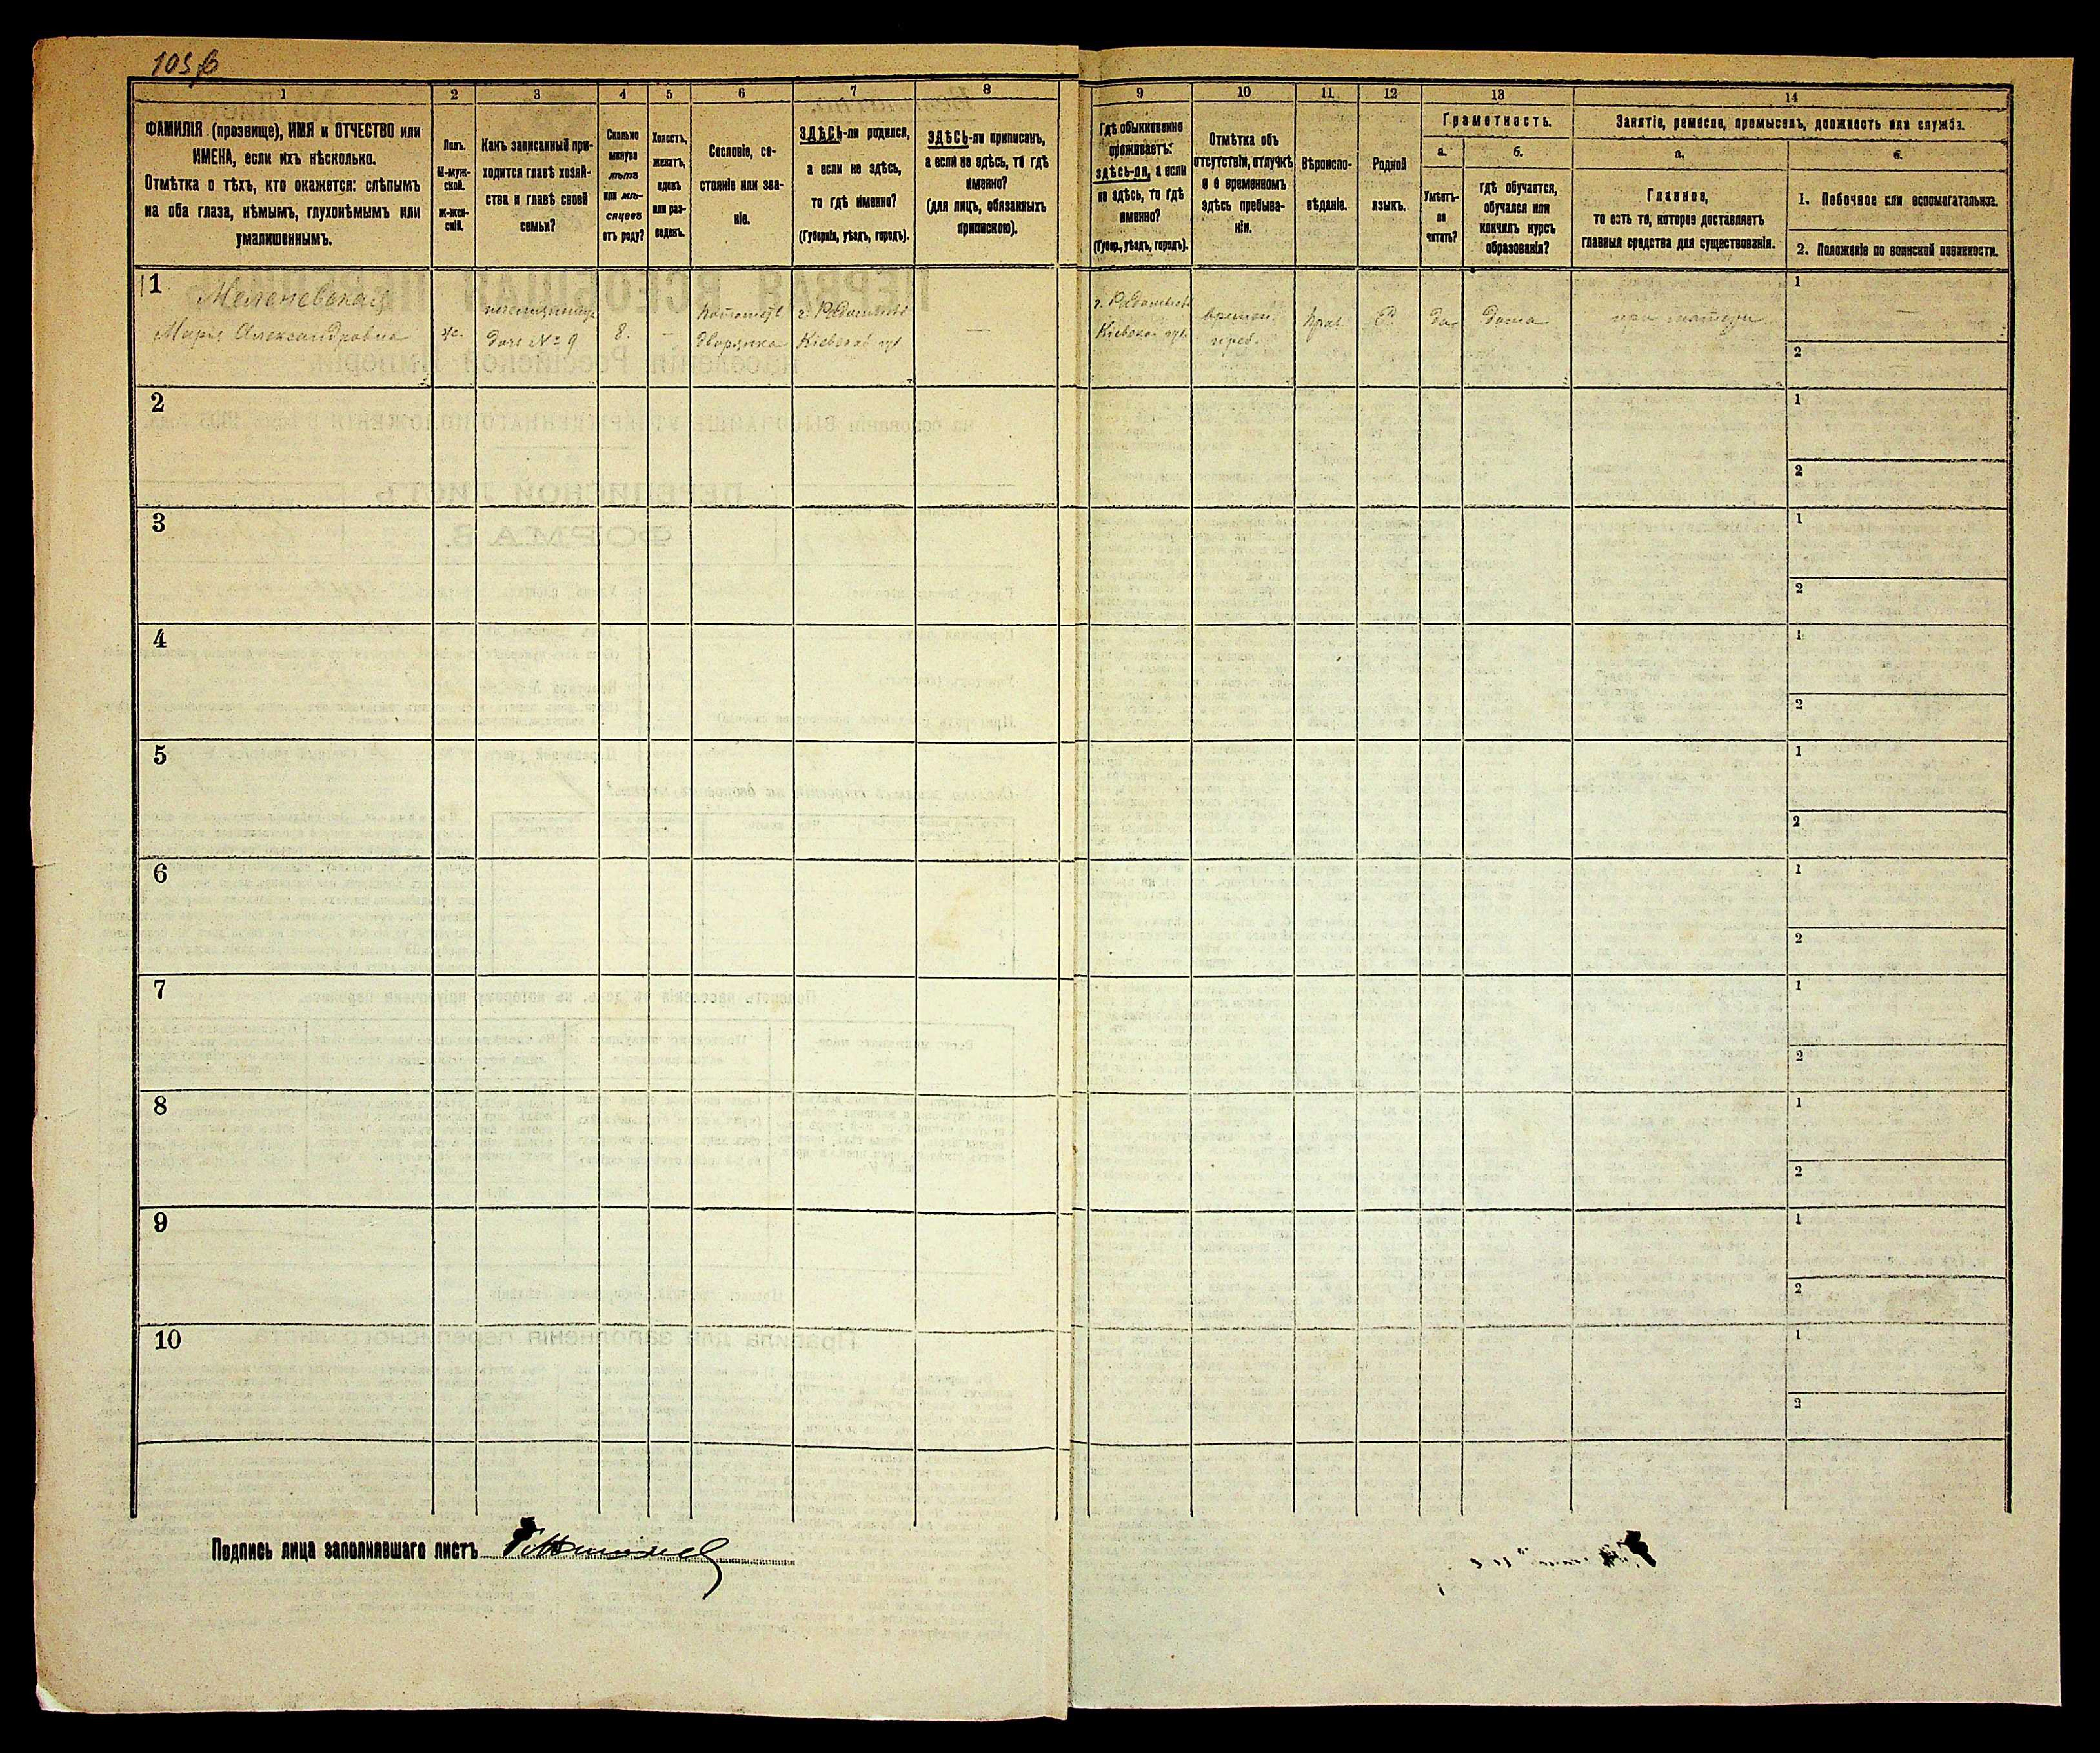 105 б
1
ФАМИЛІЯ (прозвище), ИМЯ и ОТЧЕСТВО или
ИМЕНА, если ихъ нѣсколько.
Отмѣтка о тѣхъ, кто окажется: слѣпымъ
на оба глаза, нѣмымъ, глухонѣмымъ или
умалишеннымъ.
2
Полъ.
М-муж-
ской.
ж-жен-
скій.
3
Какъ записанный при-
ходится главѣ хозяй-
ства и главѣ своей
семьи?
4
Сколько
минуло
лѣтъ
или мѣ-
сяцевъ
отъ роду?
5
Холостъ,
женатъ,
вдовъ
или раз-
веденъ.
6
Сословіе, со-
стояніе или зва-
ніе.
7
ЗДѢСЬ-ли родился,
а если не здѣсь,
то гдѣ именно?
(Губернія, уѣздъ, городъ).
8
ЗДѢСЬ-ли приписанъ,
а если не здѣсь, то гдѣ
именно?
(для лицъ, обязанныхъ
припискою).
9
Гдѣ обыкновенно
проживаетъ:
здѣсь-ли, а если
не здѣсь, то гдѣ
именно?
(Губер., уѣздъ, городъ).
10
Отмѣтка объ
отсутствіи, отлучкѣ
и о временномъ
здѣсь пребыва-
ніи.
11
Вѣроиспо-
вѣданіе.
12
Родной
языкъ.
13
Грамотность.
а.
Умѣетъ-
ли
читать?
б.
гдѣ обучается,
обучался или
кончилъ курсъ
образованія?
14
Занятіе, ремесло, промыселъ, должность или служба.
а.
Главное,
то есть то, которое доставляетъ
главныя средства для существованія.
б.
1. Побочное или вспомогательное.
2. Положеніе по воинской повинности.
1
Меленевская
Марія Александровна
ж.
дочь № 9
8.
—
дворянка
Кіевской губ
—
Кіевской губ.
времен.
преб.
прав.
Р.
да
дома
при матери
1 —
2 —
2
1
2
3
1
2
4
1
2
5
1
2
6
1
2
7
1
2
8
1
2
9
1
2
10
1
2
Подпись лица заполнявшаго листъ